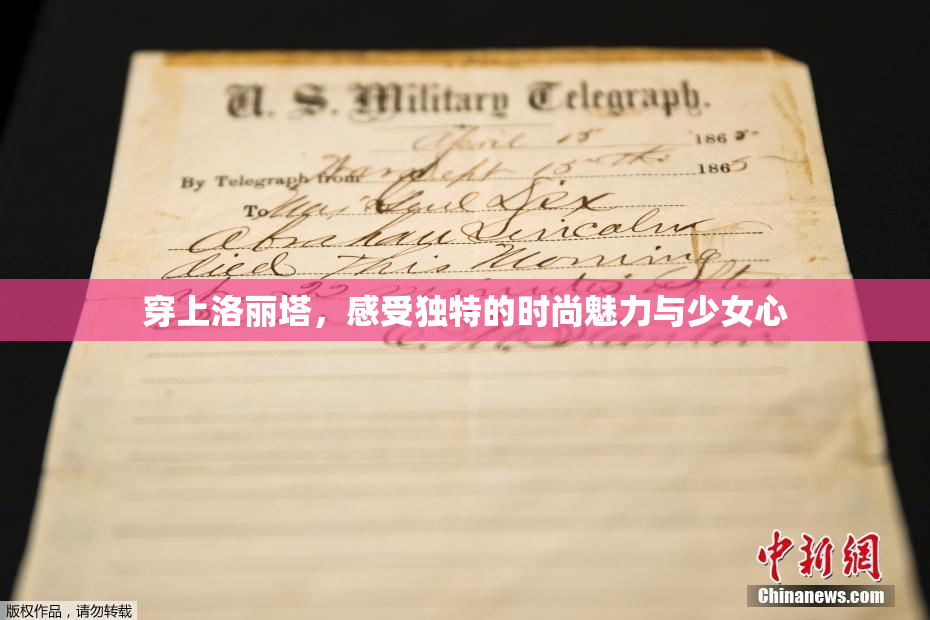 U. S. Military Telegraph.
April 15 1865
By Telegraph from War Dept 15th 1865
To Maj Genl Dix
Abraham Lincoln
died This Morning
22 minutes after
穿上洛丽塔，感受独特的时尚魅力与少女心
E. M. Stanton
中新网
Chinanews.com
版权作品，请勿转载